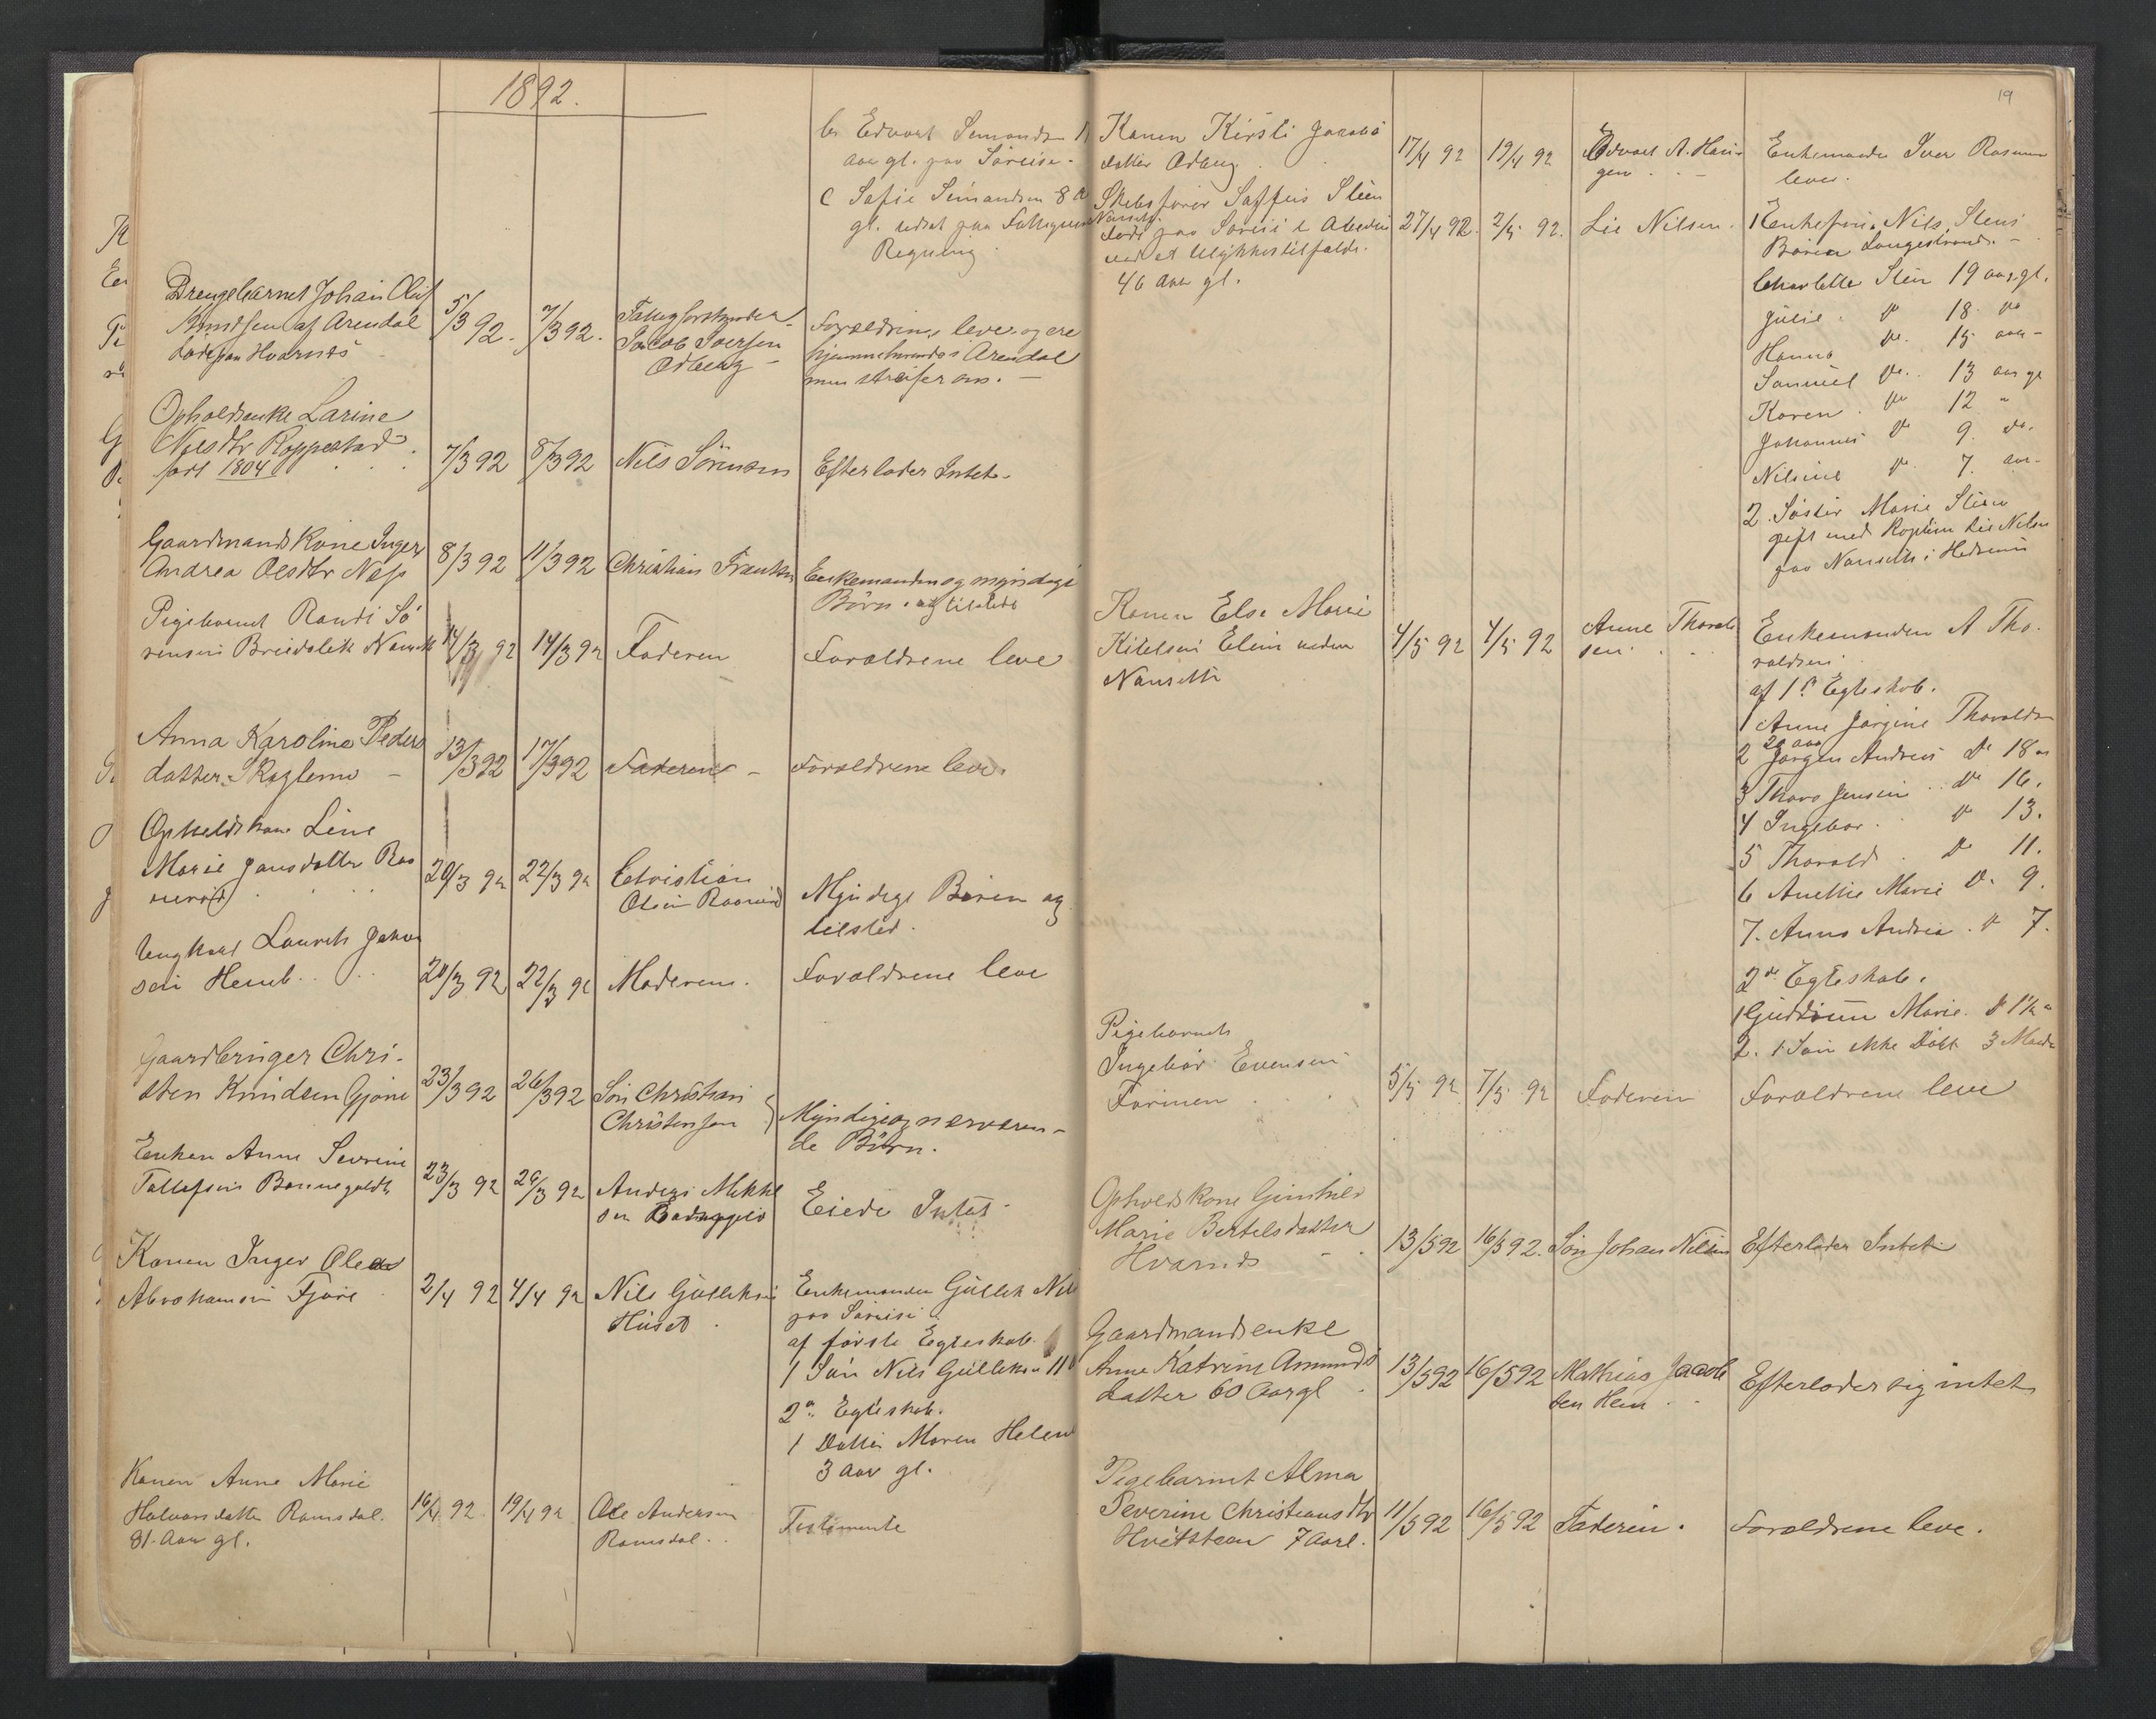 1892.
b Edvart Simonsen
aar gl. paa
c Safie Simonsen 8
gl. udsat paa
Regning.
Drengebarnet Johan Oluf
Knudsen af Arendal
døde paa Hvarnes
5/3 92. 7/3 92.
Jacob Iversen
Odberg
Forældrene lever og ere
hjemmehørende i Arendal
men streifer om.
Opholdsenke Larine
Nilsdtr Roppestad
født 1804
7/3 92 8/3 92 Nils Sørensen Efterlader Intet.
Gaardmands Kone Inger
Andrea Olsdtr Næss
8/3 92 11/3 92 Christian Frantsen
Enkemanden og myndige
Børn
Pigebarnet Randi Sø
rensen
14/3 92 14/3 92 Faderen Forældrene leve
Anna Karoline Peders
datter
13/3 92 17/3 92 Faderen Forældrene leve.
Opholdskone Line
Marie Jansdatter Rao
nerød
20/3 92 22/3 92 Christian
Olsen Raonerød
Myndige Børen og
tilsted.
Ungkarl Laurits Jakob
sen Hemb
20/3 92 22/3 92 Moderen. Forældrene leve
Gaardbruger Chri-
sten Knudsen Gjone
23/3 92 26/3 92 Søn Christian
Christensen
Myndige og nærværen-
de Børn.
Enken Anne Severine
Tollefsen
23/3 92 26/3 92 Anders Mikkel
sen
Eiede Intet
Konen Inger Olea
Abrahamsen Fjære
2/4 92 4/4 92 Nils Gulleksen
Huset
Enkemanden Gullek Nils
paa
af første Egteskab
1 Søn Nils Gulleksen 11
2. Egteskab.
1 Datter Maren Helene
3 aar gl.
Konen Anne Marie
Halvorsdatter Ramsdal.
81. Aar gl.
16/4 92. 19/4 92 Ole Andersen
Ramsdal.
Testamente
19
Konen Kirsti Jacobs
datter Odberg
17/4 92 19/4 92 Edvart A. Hau
gen
Enkemanden Iver Rasmus
lever.
Skibsfører Steen
Nanseth
døde paa
ved et Ulykkestilfælde.
46 Aar gl.
27/4 92. 2/5 92. Lie Nilsen.
1 Nils Steen
Børen Langestrand.
Charlotte Steen 19 aar gl.
Julie do 18. do
Hanna do. 15 aar
Samuel do. 13 aar gl
Karen do 12 "
Johannes do 9. do.
Nilsine do. 7. aar
2. Søster Marie Steen
gift med Kaptein Lie Nilsen
paa Nanseth i Hedrum
Konen Else Marie
Kittelsen nedre
Nanseth
4/5 92 4/5 92 Anne Thorvald
sen
Enkemanden A Tho-
raldsen
af 1ste Egteskab.
1 Anne Jørgine Thoraldsen
20 aar
2 Jørgen Andreas do 18 aar
3 Thora Jensine do 16.
4 Ingebor. do 13.
5 Thorald. do 11.
6 Anethe Marie do 9.
7. Anna Andrea. do 7.
2det Egteskab.
1 Gudrun Marie. do 1½ a
2. 1 Søn ikke Døbt 3 Maaneder
Pigebarnet
Ingebor Evensen
Farmen
5/5 92 7/5 92 Faderen Forældrene leve
Opholdskone Gunhild
Marie Bertelsdatter
Hvarnes
13/5 92 16/5 92. Søn Johan Nilsen Efterlader Intet
Gaardmandsenke
Anne Katrine Amunds
datter 60 Aar gl
13/5 92 16/5 92 Mathias Jacob
sen Hem
Efterlader sig intet
Pigebarnet Alma
Severine Christiansdtr
Hvitsteen 7 Aar.
11/5 92 16/5 92 Faderen. Forældrene leve.